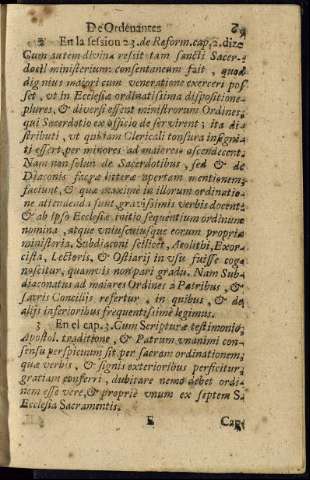 De Ordenantes 69
2 En la session 23. de Reform. cap. 2. dize
Cum autem divina res sit tam sancti Sacer-
docii ministerium: consentaneum fuit, quod
dignius maiori cum veneratione exerceri pos
set, vt in Ecclesiæ ordinatissima dispositione
plures, & diversi essent ministrorum Ordines,
qui Sacerdotio ex officio deservirent; ita di-
stributi, vt qui iam Clericali tonsura insigni-
ti essent, per minores ad maiores ascenderent
Nam non solum de Sacerdotibus, sed & de
Diaconis sacræ litteræ apertam mentionem
faciunt, & quæ maxime in illorum ordinatio
ne attendenda sunt gravissimis verbis docent
& ab ipso Ecclesiæ initio sequentium ordinum
nomina, atque vniuscuiusque eorum propria
ministeria, Subdiaconi scilicet, Acolithi, Exor-
cista, Lectoris, & Ostiarij in vsu fuisse cog-
noscitur, quamvis non pari gradu. Nam Sub-
diaconatus ad maiores Ordines a Patribus, &
sacris Conciliis refertur, in quibus, & de
alijs inferioribus frequentissime legimus.
3 En el cap. 3. Cum Scripturæ testimonio,
Apostol. traditione, & Patrum vnanimi con-
sensu perspicuum sit, per sacram ordinationem,
quæ verbis, & signis exterioribus perficitur,
gratiam conferri, dubitare nemo debet ordi-
nem esse vere, & propriè vnum ex septem S.
Ecclesia Sacramentis.
E Cap.